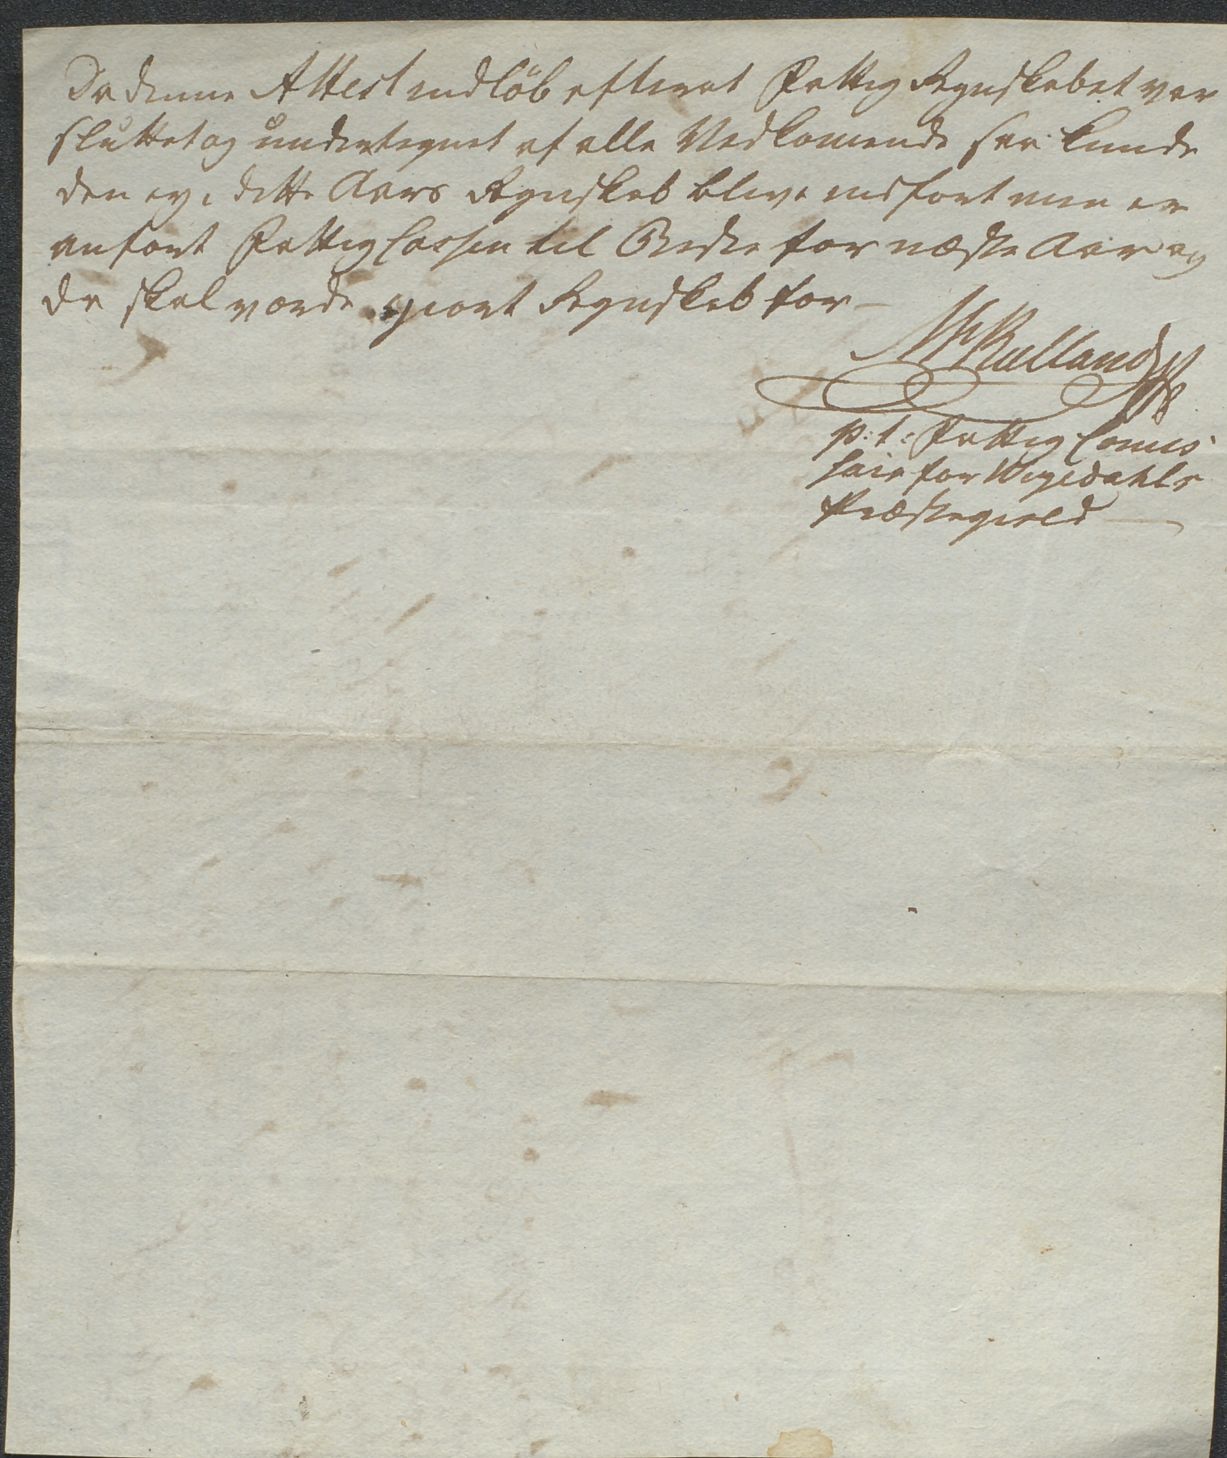 Da denne Attest indløb efterat Fattig Regnskabet var
sluttet og undertegnet af alle Vedkomende saa kunde
den ey i dette Aars Regnskab blive indført men er
anført Fattig Cassen til Beste for næste Aar og
da skal vorde giort Regnskab for –
Rulland
p: t: Fattig Comis
sair for Wigedahls
Præstegield